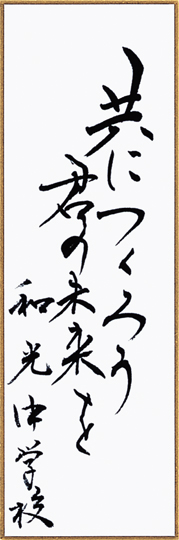 共につくろう
君の未来を
和光中学校